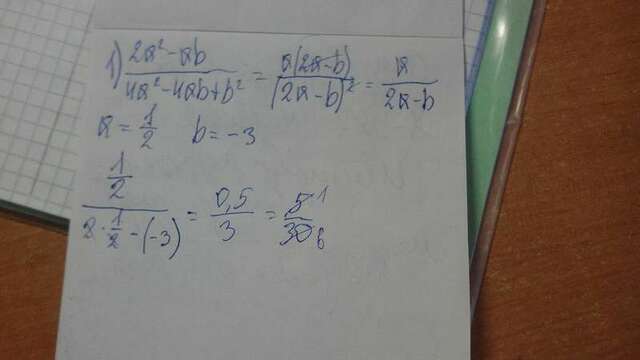 1) (2a² - ab)/(4a² - 4ab + b²) = a(2a - b)/(2a - b)² = a/(2a - b)
a = 1/2 b = -3
(1/2)/(2 · 1/2 - (-3)) = 0,5/3 = 5/30 1 6